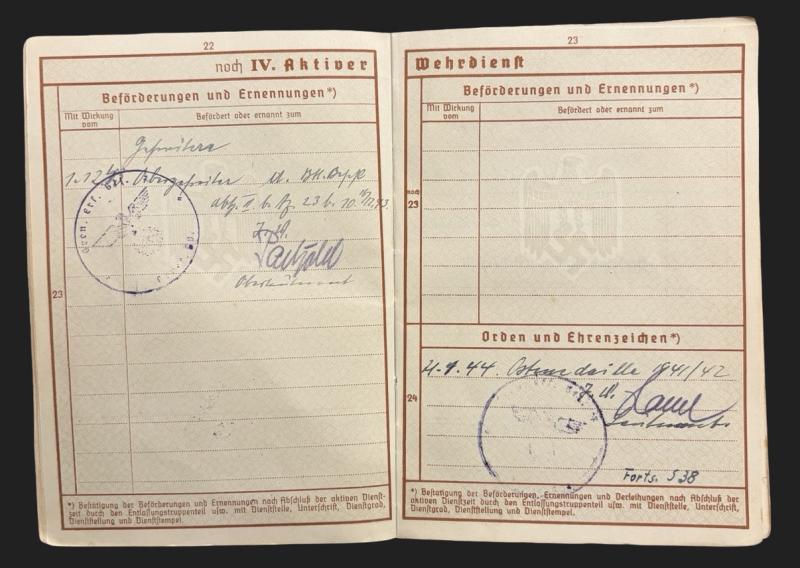 22
noch IV. Aktiver
Beförderungen und Ernennungen*)
Mit Wirkung vom
Befördert oder ernannt zum
Gefreiter
Obergefreiter
23
Oberleutnant
*) Bestätigung der Beförderungen und Ernennungen nach Abschluß der aktiven Dienst-
zeit durch den Entlassungstruppenteil usw. mit Dienststelle, Unterschrift, Dienstgrad,
Dienststellung und Dienststempel.
23
Wehrdienst
Beförderungen und Ernennungen*)
Mit Wirkung vom
Befördert oder ernannt zum
noch
23
Orden und Ehrenzeichen*)
44. 1941/42
24
Leutnant
Forts. S 38
*) Bestätigung der Beförderungen, Ernennungen und Verleihungen nach Abschluß der
aktiven Dienstzeit durch den Entlassungstruppenteil usw. mit Dienststelle, Unterschrift,
Dienstgrad, Dienststellung und Dienststempel.